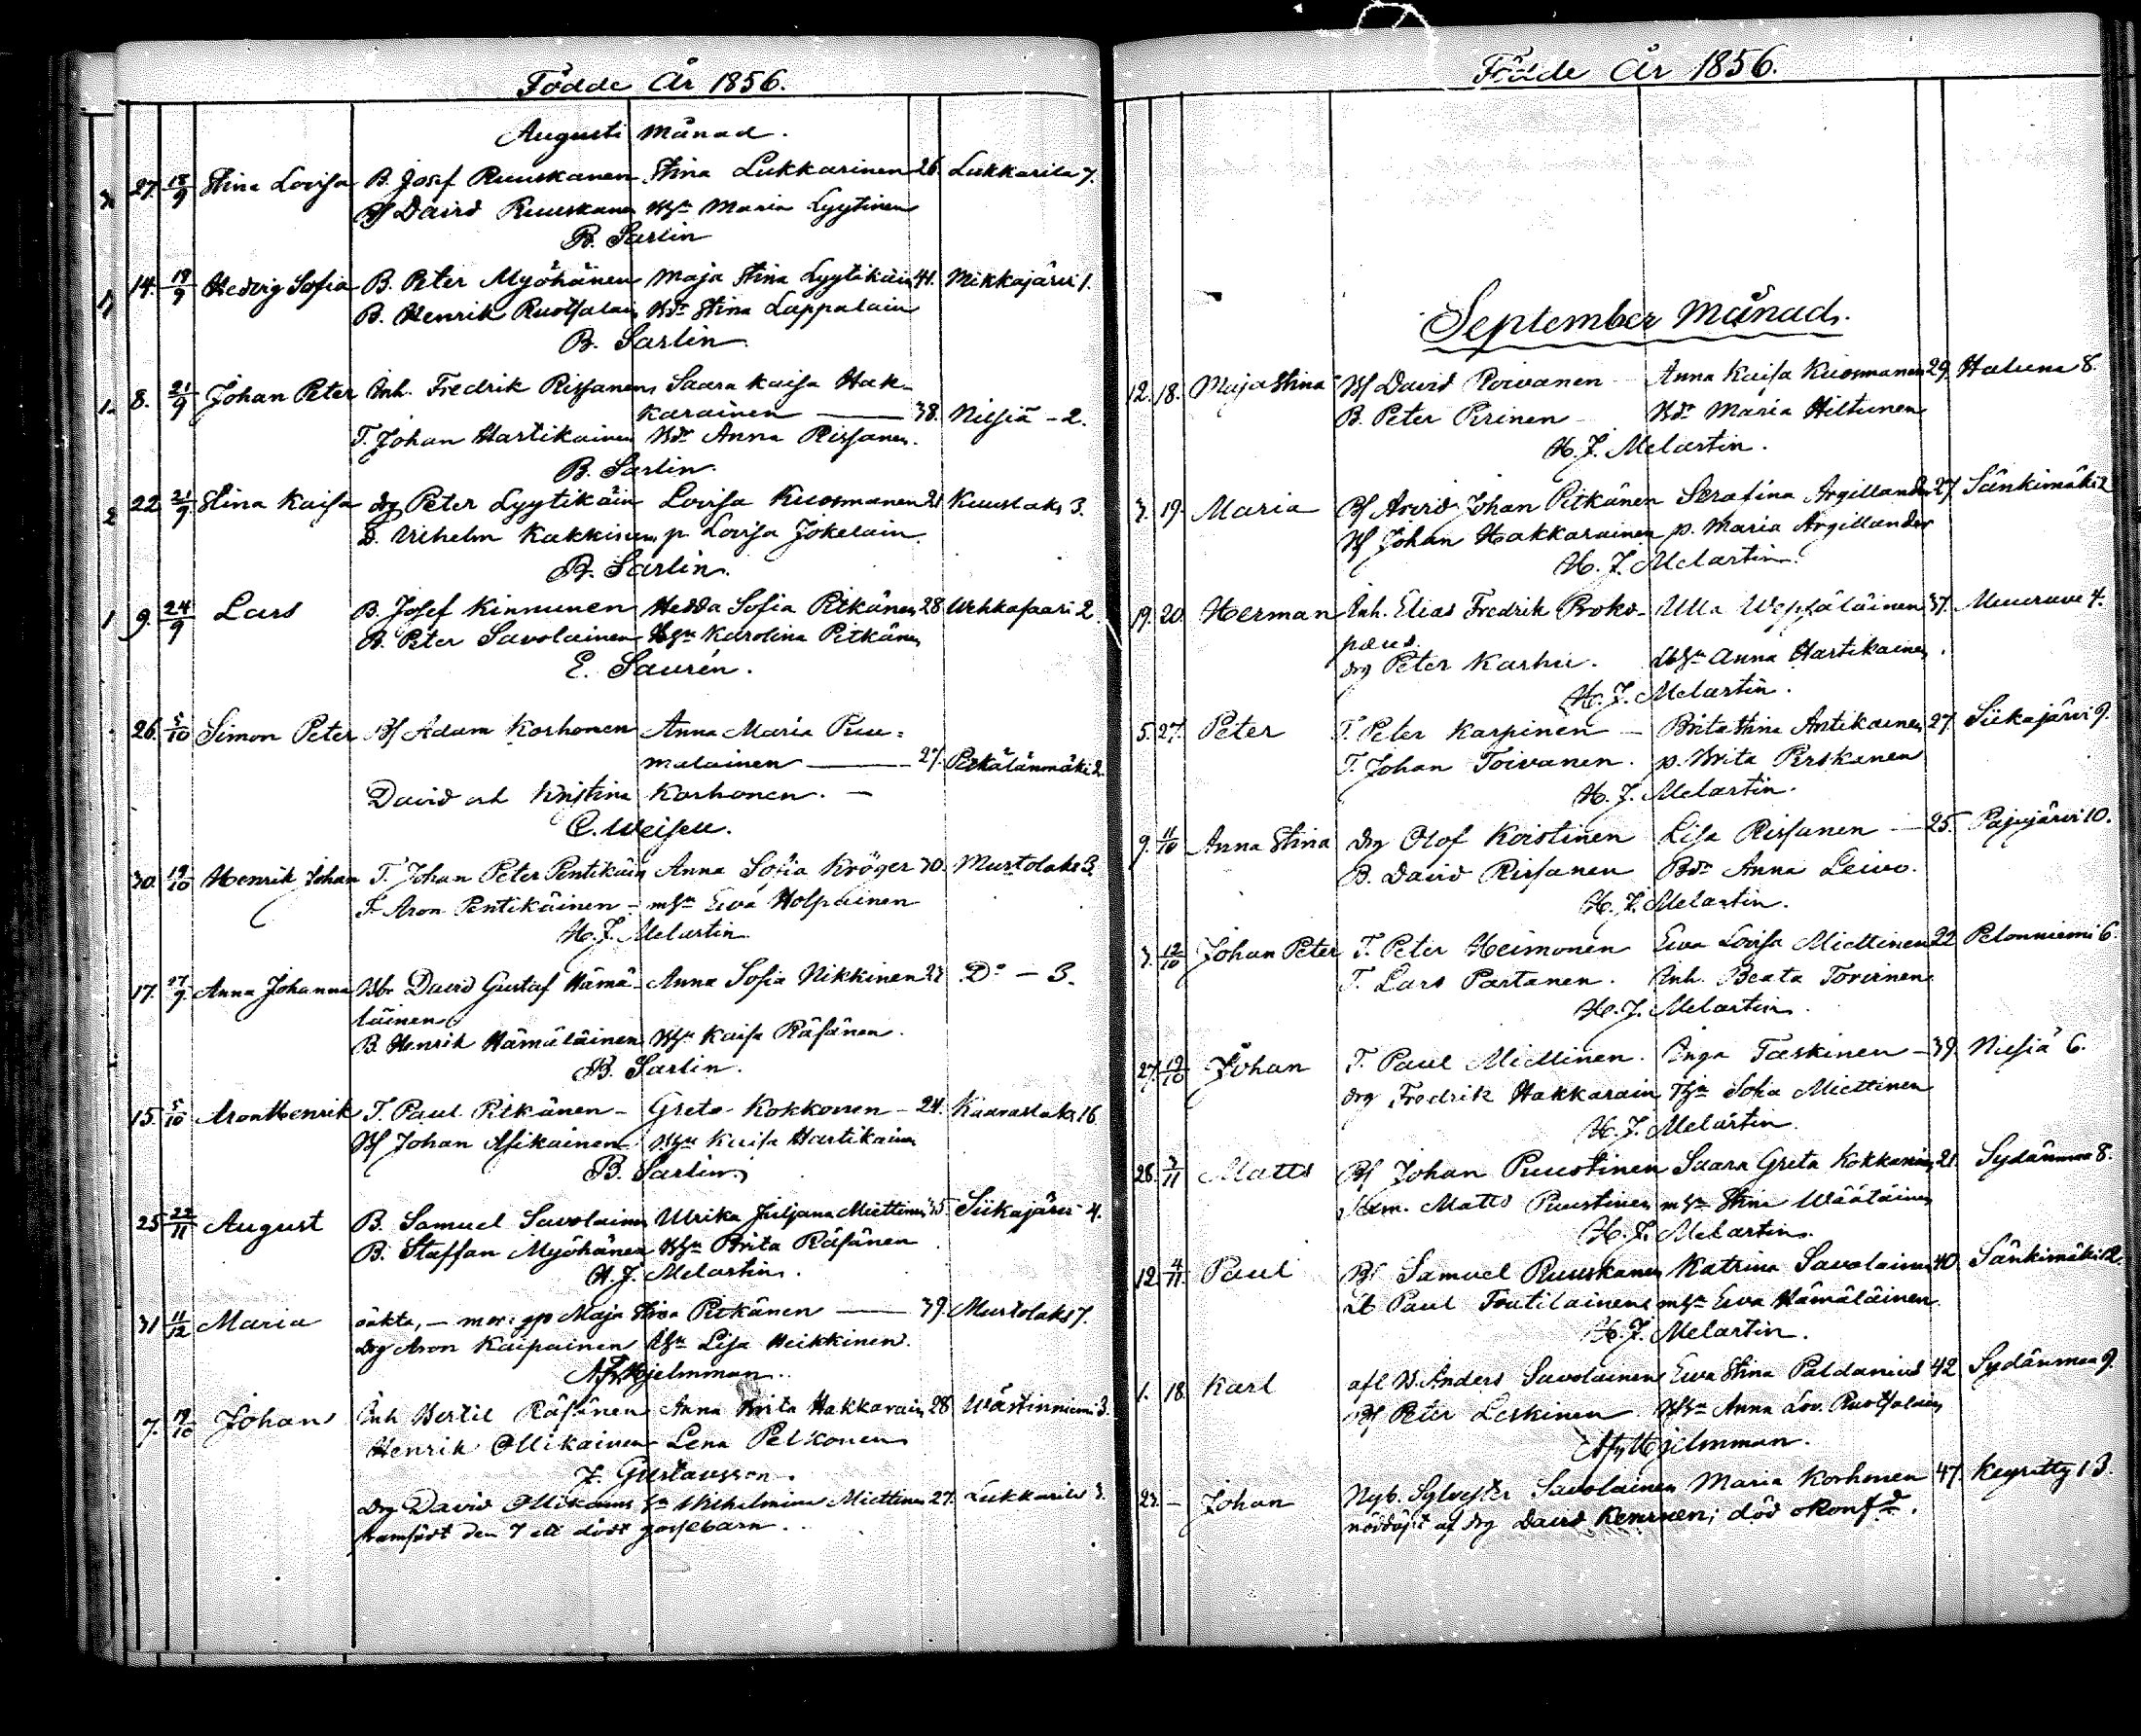 Födde År 1856.
Augusti Månad.
27. 18/9 Stina Lovisa B. Josef Ruuskanen Stina Lukkarinen 26. Lukkarila 7.
Bf David Ruuskanen Maria Lyytinen
B. Sarlin
14. 19/9 Hedvig Sofia B. Peter Myöhänen Maja Stina Lyytikäin 41. Mikkajärvi 1.
B. Henrik Ruotsalain Bdr Stina Lappalain
B. Sarlin
1. 8. 21/9 Johan Peter Inh. Fredrik Rissanen Saara Kaisa Hak-
karainen — 38. Nilsiä - 2.
T. Johan Hartikainen Bdr Anna Rissanen.
B. Sarlin.
2 22 21/9 Stina Kaisa drg Peter Lyytikäin Lovisa Kuosmanen 21 Kuuslaks 3.
D. Vilhelm Kakkinen p. Lovisa Jokelain.
B. Sarlin.
1 9. 24/9 Lars B. Josef Kinnunen Hedda Sofia Pitkänen 28 Wehkasaari 2.
B. Peter Savolainen Karolina Pitkänen
E. Saurén.
26. 5/10 Simon Peter Bf Adam Korhonen Anna Maria Puu-
malainen — 27. Pitkälänmäki 2.
David och Kristina Korhonen. —
C. Weisell.
30. 19/10 Henrik Johan T. Johan Peter Pentikäin Anna Sofia Kröger 30. Murtolaks 3.
T. Aron Pentikäinen - Ewa Holpainen
H. J. Melartin
17. 27/9. Anna Johanna David Gustaf Hämä- Anna Sofia Nikkinen 23 Do - 3.
läinen
B. Henrik Hämäläinen Kaisa Räsänen.
B. Sarlin.
15. 5/10 Aron Henrik T. Paul Pitkänen - Greta Kokkonen - 24. Kaaraslaks 16.
Bf Johan Asikainen Kaisa Hartikainen
B. Sarlin.
25 22/11 August B. Samuel Savolainen Ulrika Juljana Miettinen 35 Siikajärvi 4.
B. Staffan Myöhänen Brita Räsänen
H. J. Melartin.
31 11/12 Maria oäkta, — mor: Maja Stina Pitkänen — 39. Murtolaks 7.
drg Aron Kaipainen Lisa Heikkinen.
Hjelmman.
7. 19/10 Johan Inh Bertil Räsänen Anna Brita Hakkarain 28 Wästinniemi 3.
Henrik Ollikainen Lena Pelkonen
J. Gustavsson.
drg David Ollikainen Wilhelmina Miettinen 27. Lukkarila 3.
framfödt den 7 ett dödt gossebarn.
Födde År 1856.
September Månad.
12. 18. Maja Stina Bf David Poivanen Anna Kaisa Kuosmanen 29. Haluna 8.
B. Peter Pirinen - Bdr Maria Hiltunen
H. J. Melartin.
3. 19. Maria Bf Arvid Johan Pitkänen Serafina Argillander 27. Sänkimäki 2
Bf Johan Hakkarainen p. Maria Argillander
H. J. Melartin.
19. 20. Herman Inh. Elias Fredrik Proko- Ulla Wepsäläinen 37. Muuruvi 4.
pæus.
drg Peter Karhu. Anna Hartikainen.
H. J. Melartin.
5. 27. Peter T. Peter Karpinen — Brita Stina Antikainen 27. Siikajärvi 9.
T. Johan Toivanen. p. Brita Pirskanen
H. J. Melartin.
9. 11/10 Anna Stina drg Olof Koistinen Lisa Rissanen — 25. Pajujärvi 10.
B. David Rissanen Bdr Anna Leivo.
H. J. Melartin.
3. 12/10 Johan Peter T. Peter Heimonen Ewa Lovisa Miettinen 22 Pelonniemi 6.
T. Lars Partanen. Inh. Beata Tovirinen
H. J. Melartin.
27. 19/10 Johan T. Paul Miettinen. Inga Taskinen — 39. Nilsiä 6.
drg Fredrik Hakkarain Sofia Miettinen
H. J. Melartin.
28. 3/11 Matts Bf Johan Puustinen Saara Greta Kokkonen 21. Sydänmaa 8.
Matts Puustinen Stina Wäätäinen
H. J. Melartin.
12. 4/11. Paul Bf Samuel Ruuskanen Katrina Savolainen 40. Sänkimäki 12.
Paul Toutilainen Ewa Hämäläinen.
H. J. Melartin.
1. 18. Karl afl. B. Anders Savolainen Ewa Stina Paldanius 42 Sydänmaa 9.
Bf Peter Leskinen Anna Lov. Ruotsalain
Hjelmman.
23. — Johan Nyb. Sylvester Savolainen Maria Korhonen 47. Keyritty 13.
nöddöpt af drg David Kemrinen; död